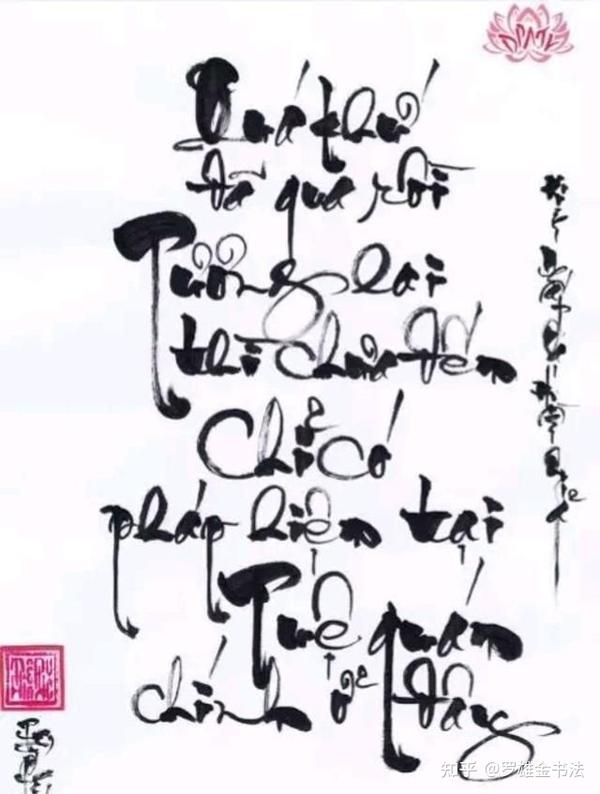 Quá khứ
đã qua rồi
Tương lai
thì chưa đến
Chỉ có
pháp hiện tại
Tuệ quán
chính ở đây
知乎 @罗雄金书法